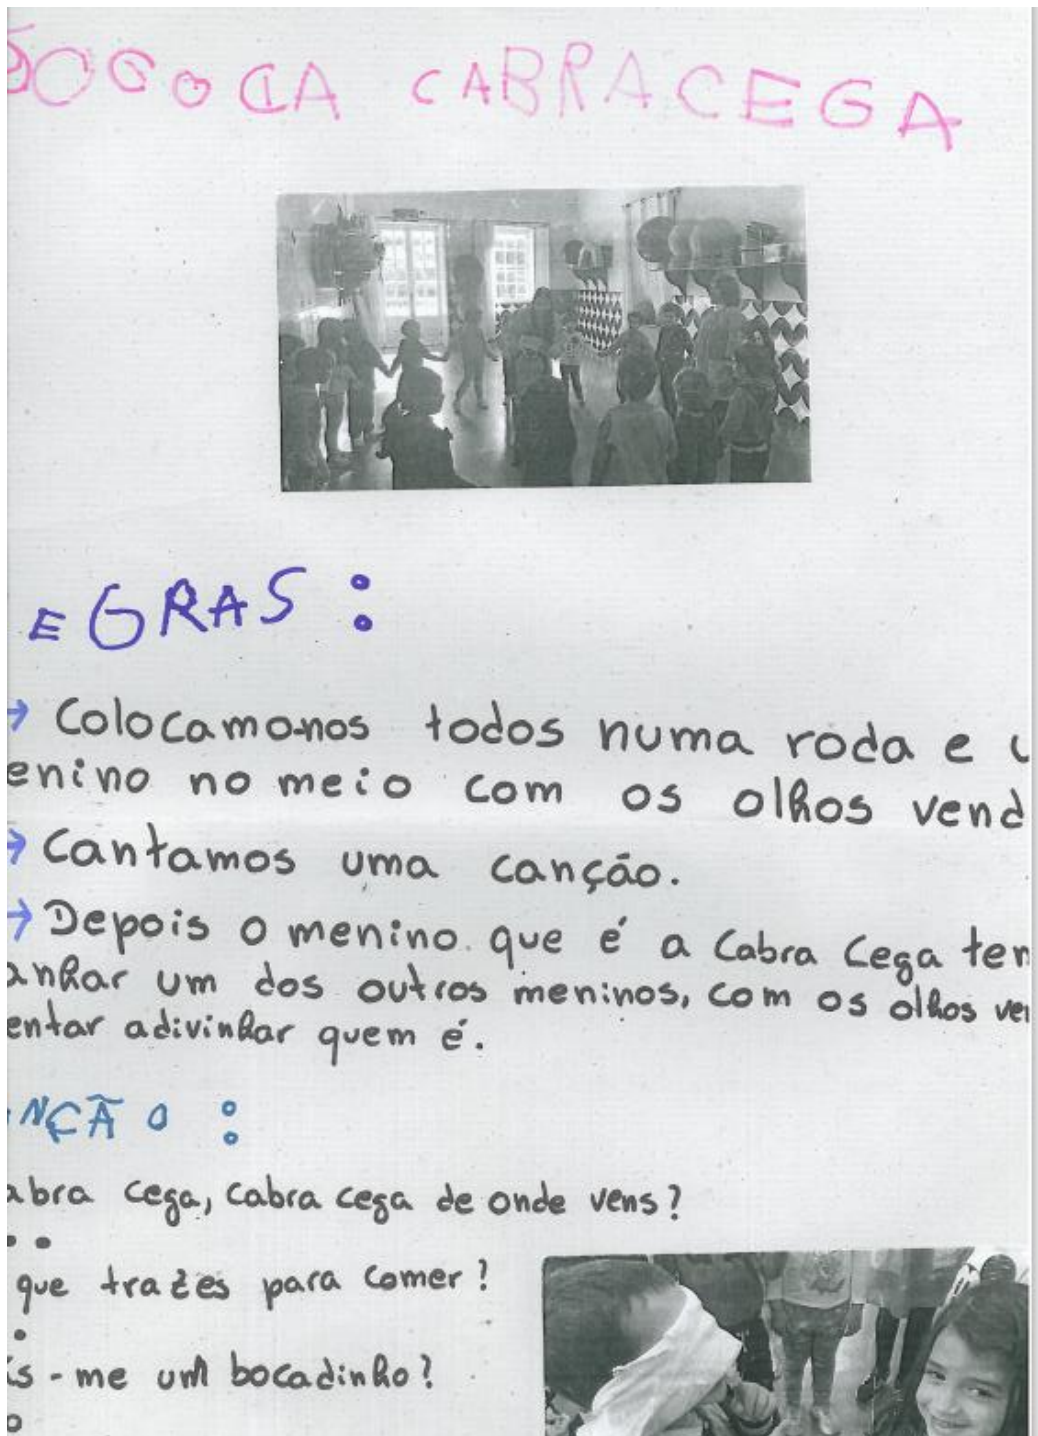 JOGO DA CABRA CEGA
EGRAS:
→ Colocamo-nos todos numa roda e u
enino no meio com os olhos vend
→ Cantamos uma canção.
→ Depois o menino que é a Cabra Cega ten
anhar um dos outros meninos, com os olhos ven
entar adivinhar quem é.
NÇÃO:
abra cega, cabra cega de onde vens?
que trazes para comer?
is-me um bocadinho?
o